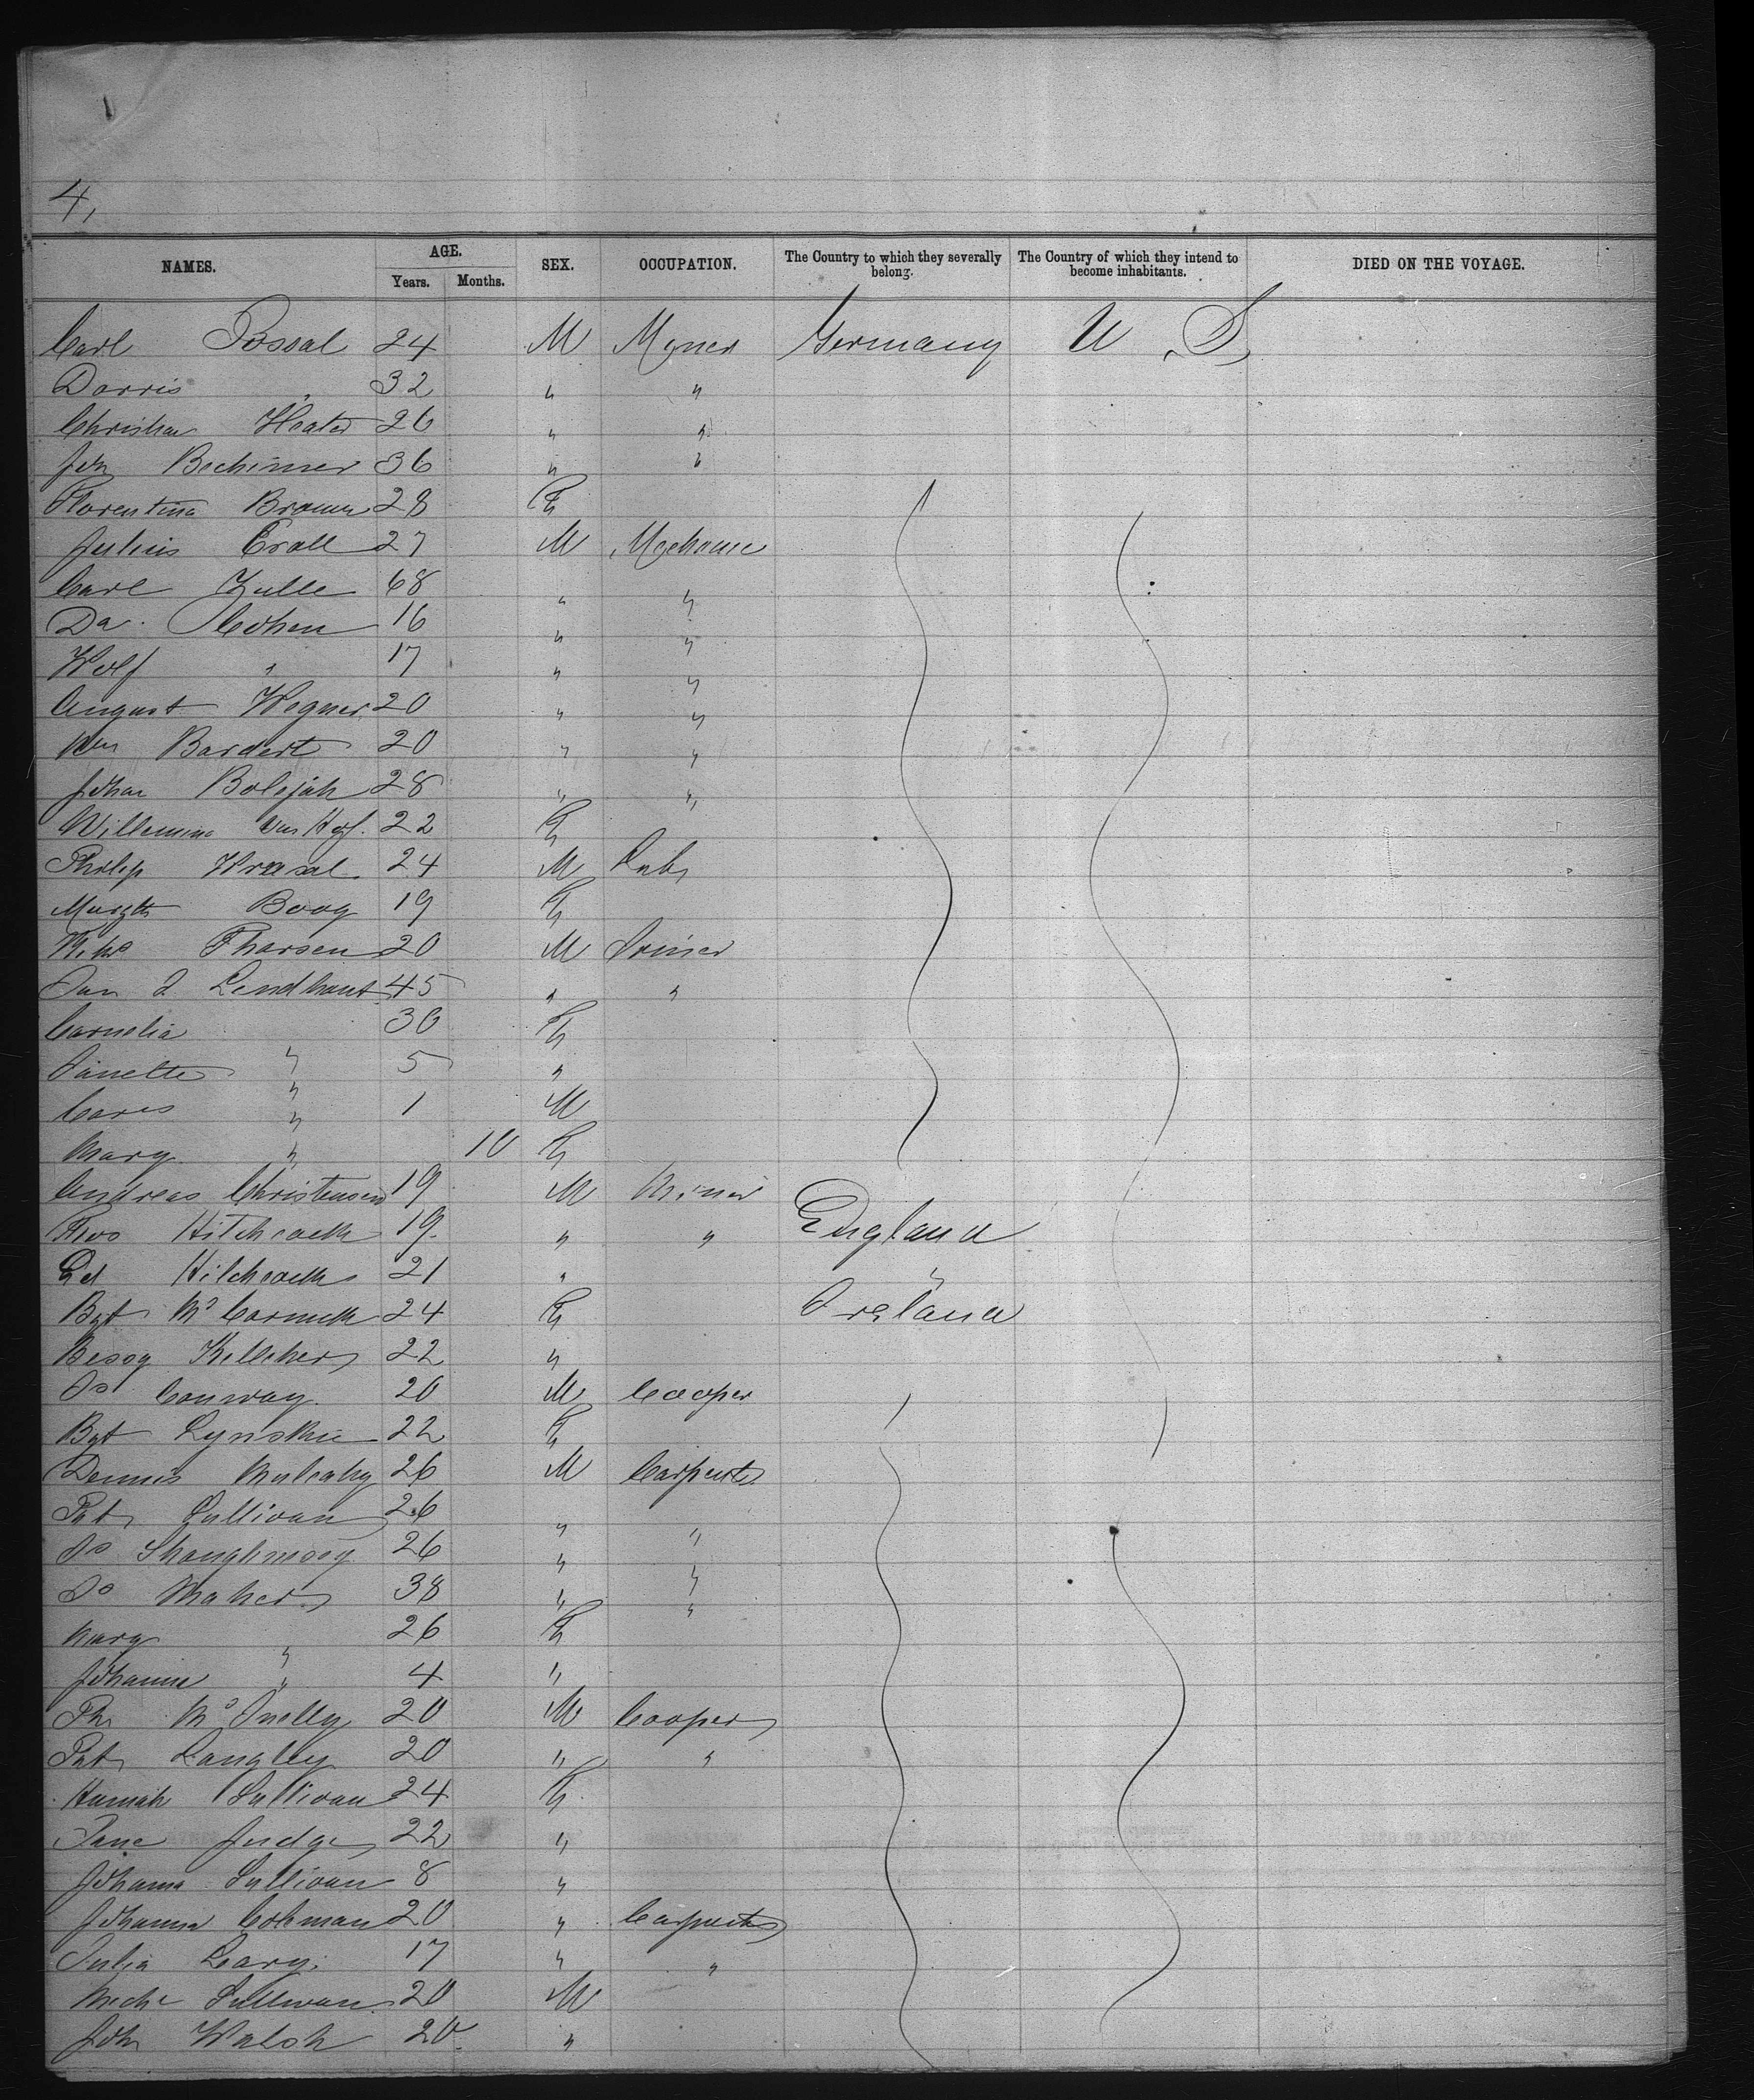 4,
NAMES. AGE. Years. Months. SEX. OCCUPATION. The Country to which they severally belong. The Country of which they intend to become inhabitants. DIED ON THE VOYAGE.
Carl Possal 24 M Myner Germany U S
Dorris " 32 " "
Christian Heater 26 " "
Joh Bechimer 36 " "
Florentina Braun 28 F
Julius Erall 27 M Mechanic
Carl Zulle 68 " "
Da. Cohen 16 " "
Wolf " 17 " "
August Wegner 20 " "
Wm Bardert 20 " "
Johan Bolejah 28 " "
Willemina 22 F
Philip 24 M Lab
Margth Boog 19 F
Thorsen 20 M Joiner
Jan Lendhout 45 " "
Cornelia 30 F
Janette " 5 "
" 1 M
Mary " 10 F
Andreas Christensen 19 M Miner
Thos Hitchcock 19 " " England
Ed Hitchcock 21 " "
Bgt McCormick 24 F Ireland
Bessy Kelleher 22 "
Js Conway 20 M Cooper
Bgt Lynskie 22 F
Dennis Mulcahy 26 M Carpent
Pat Sullivan 26 " "
Js Shaughnessy 26 " "
Js Maher 38 " "
Mary " 26 F
Johanna " 4 "
Ths 20 M Cooper
Pat Langley 20 " "
Hannah Sullivan 24 F
Jane Judge 22 "
Johanna Sullivan 8 "
Johanna Coleman 20 " Carpenter
Julia Leary 17 " "
Michl Sullivan 20 M
John Walsh 20 "